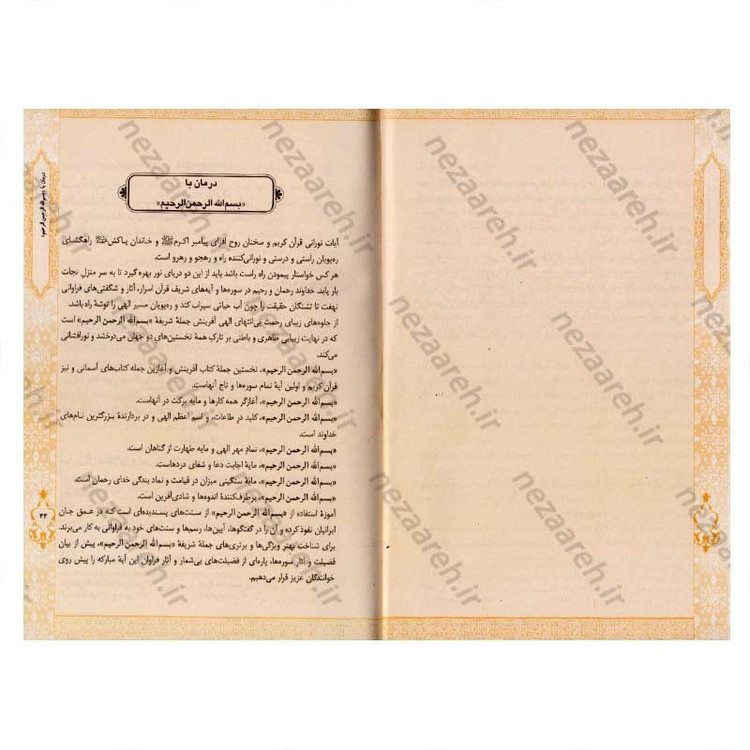 درمان با
«بسم‌الله الرحمن الرحیم»
آیات نورانی قرآن کریم و سخنان روح افزای پیامبر اکرم ﷺ و خاندان پاکش راهگشای
ره‌پویان راستی و درستی و نورانی‌کننده راه و رهجو و رهرو است.
هر کس خواستار پیمودن راه راست باشد باید از این دو دریای نور بهره‌گیرد تا به سر منزل نجات
بار یابد. خداوند رحمان و رحیم در سوره‌ها و آیه‌های شریف قرآن اسرار، آثار و شگفتی‌های فراوانی
نهفت تا تشنگان حقیقت را چون آب حیاتی سیراب کند و ره‌پویان مسیر الهی را توشهٔ راه باشد.
از جلوه‌های زیبای رحمت بی‌انتهای الهی آفرینش جملهٔ شریفهٔ «بسم‌الله الرحمن الرحیم» است
که در نهایت زیبایی ظاهری و باطنی بر تارک همهٔ نخستین‌های دو جهان می‌درخشد و نورافشانی
می‌کند.
«بسم‌الله الرحمن الرحیم»، نخستین جملهٔ کتاب آفرینش و آغازین جمله کتاب‌های آسمانی و نیز
قرآن کریم و اولین آیهٔ تمام سوره‌ها و تاج آنهاست.
«بسم‌الله الرحمن الرحیم»، آغازگر همه کارها و مایه برکت در آنهاست.
«بسم‌الله الرحمن الرحیم»، کلید در طاعات، و اسم اعظم الهی و در بردارندهٔ بزرگترین نام‌های
خداوند است.
«بسم‌الله الرحمن الرحیم»، نمادِ مهر الهی و مایه طهارت از گناهان است.
«بسم‌الله الرحمن الرحیم»، مایهٔ اجابت دعا و شفای دردهاست.
«بسم‌الله الرحمن الرحیم»، مایهٔ سنگینی میزان در قیامت و نماد بندگی خدای رحمان است.
«بسم‌الله الرحمن الرحیم»، برطرف‌کنندهٔ اندوه‌ها و شادی‌آفرین است.
آموزهٔ استفاده از «بسم‌الله الرحمن الرحیم» از سنت‌های پسندیده‌ای است که در عمق جان
ایرانیان نفوذ کرده و آن را در گفتگوها، آیین‌ها، رسم‌ها و سنت‌های خود به فراوانی به کار می‌برند.
برای شناخت بهتر ویژگی‌ها و برتری‌های جملهٔ شریفهٔ «بسم‌الله الرحمن الرحیم»، پیش از بیان
فضیلت و آثار سوره‌ها، پاره‌ای از فضیلت‌های بی‌شمار و آثار فراوان این آیهٔ مبارکه را پیش روی
خوانندگان عزیز قرار می‌دهیم.
درمان با «بسم‌الله الرحمن الرحیم»
nezaareh.ir
nezaareh.ir
nezaareh.ir
nezaareh.ir
nezaareh.ir
nezaareh.ir
nezaareh.ir